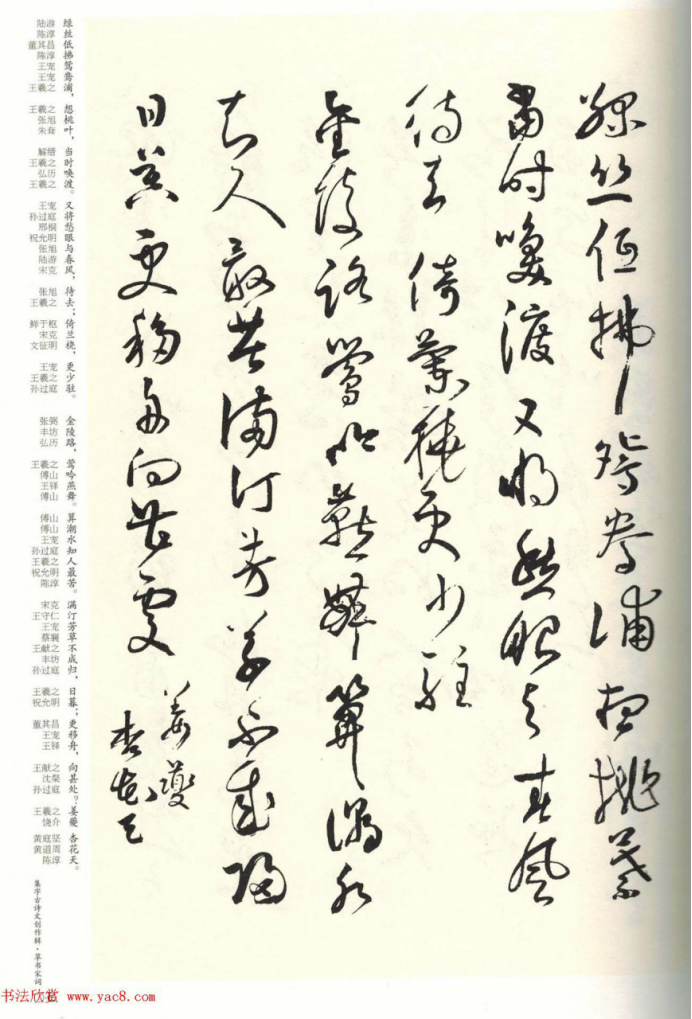 綠絲低拂鴛鴦浦想桃葉
當時喚渡又將愁眼与春風
待去倚蘭橈更少駐
金陵路鶯吟燕舞算潮水
知人最苦滿汀芳草不成歸
日暮更移舟向甚處
姜夔
杏花天
陆游 绿
陈淳 丝
董其昌 低
陈淳 拂
王宠 鸳
王宠 鸯
王羲之 浦，
王羲之 想
张旭 桃
朱耷 叶，
解缙 当
王羲之 时
弘历 唤
王羲之 渡。
王宠 又
孙过庭 将
邢侗 愁
祝允明 眼
张旭 与
陆游 春
宋克 风，
张旭 待
王羲之 去；
鲜于枢 倚
宋克 兰
文征明 桡，
王宠 更
王羲之 少
孙过庭 驻。
张弼 金
丰坊 陵
弘历 路，
王羲之 莺
傅山 吟
王铎 燕
傅山 舞。
傅山 算
傅山 潮
王宠 水
孙过庭 知
王羲之 人
祝允明 最
陈淳 苦。
宋克 满
王守仁 汀
王宠 芳
蔡襄 草
王献之 不
丰坊 成
孙过庭 归，
王羲之 日
祝允明 暮；
董其昌 更
王宠 移
王铎 舟，
王献之 向
沈粲 甚
孙过庭 处？
王羲之 姜
饶介 夔
黄庭坚 杏
黄道周 花
陈淳 天。
集字古诗文创作辑·草书宋词
书法欣赏 www.yac8.com